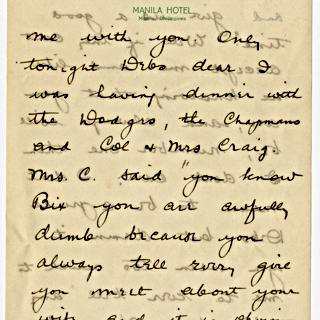 MANILA HOTEL
Manila, Philippines
me with you Only
tonight Debs dear I
was having dinner with
the Dodges, the Chapmans
and Col & Mrs. Craig.
Mrs. C. said "you know
Bix you are awfully
dumb because you
always tell every give
you meet about your
wife and it is